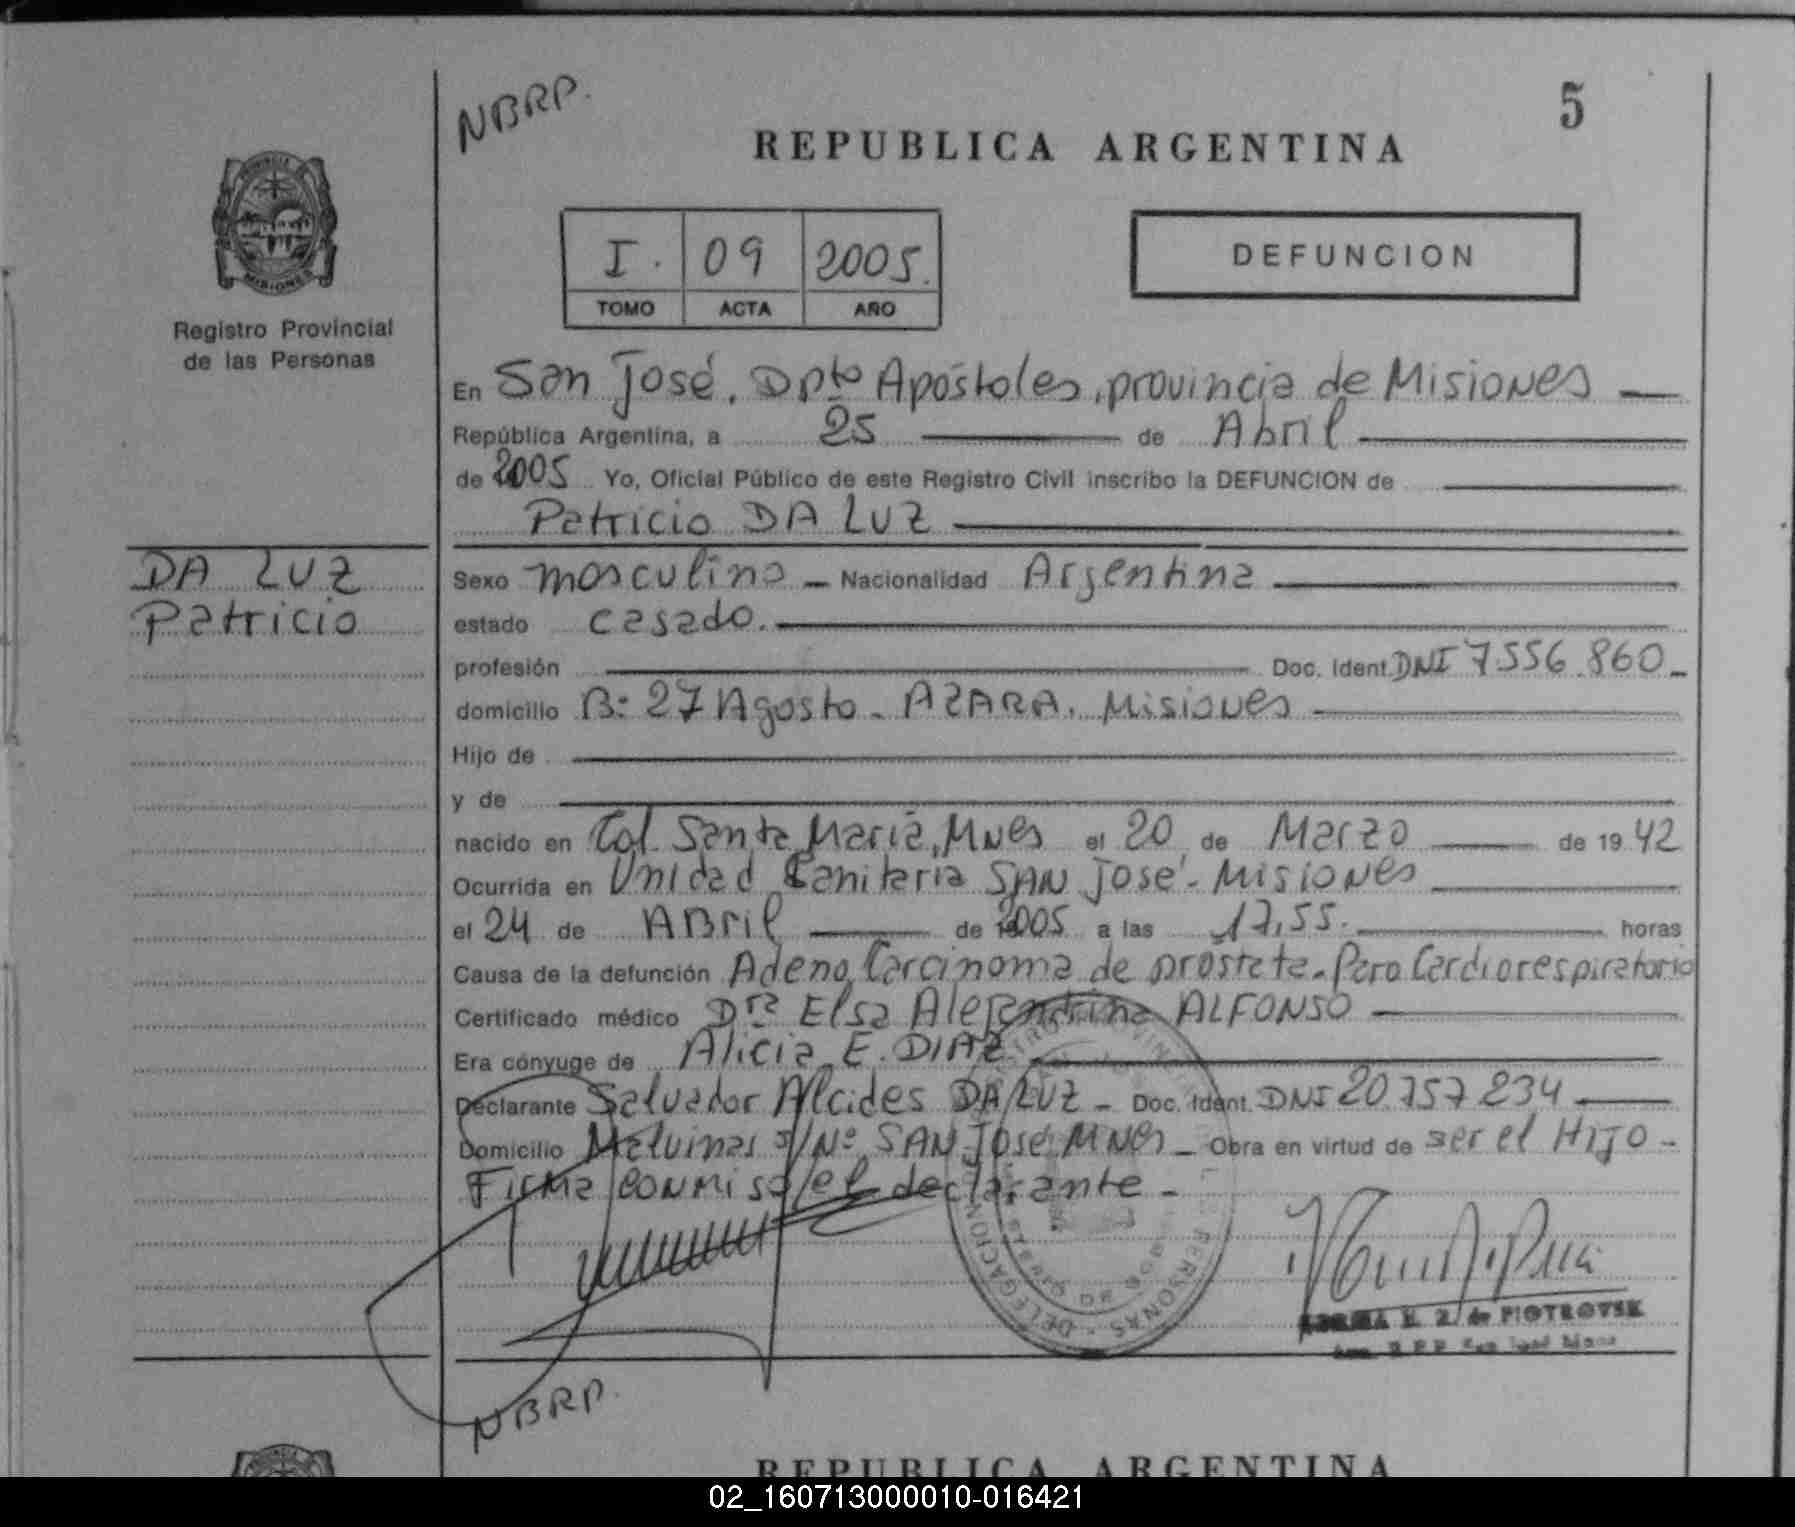 NBRP.
5
REPUBLICA ARGENTINA
PROVINCIA
MISIONES
Registro Provincial
de las Personas
I. 09 2005.
TOMO ACTA AÑO
DEFUNCION
En San José, Dpto Apóstoles, provincia de Misiones
República Argentina, a 25 de Abril
de 2005 Yo, Oficial Público de este Registro Civil inscribo la DEFUNCION de
Patricio DA LUZ
DA LUZ
Patricio
Sexo masculino - Nacionalidad Argentina
estado casado.
profesión Doc. Ident. DNI 7.556.860-
domicilio B: 27 Agosto - AZARA. Misiones
Hijo de
y de
nacido en Col. Santa María, Mnes el 20 de Marzo de 1942
Ocurrida en Unidad Sanitaria SAN José - Misiones
el 24 de ABril de 2005 a las 17,55. horas
Causa de la defunción Adeno Carcinoma de prostata - Paro Cardiorespiratorio
Certificado médico Dra Elsa Alejandrina ALFONSO
Era cónyuge de Alicia E. DIAZ
Declarante Salvador Alcides DA LUZ - Doc. Ident. DNI 20.757.234
Domicilio Malvinas s/Nº SAN José Mnes - Obra en virtud de ser el HIJO -
Firma conmigo el declarante -
de PIOTROVSK
NBRP.
REPUBLICA ARGENTINA
02_160713000010-016421